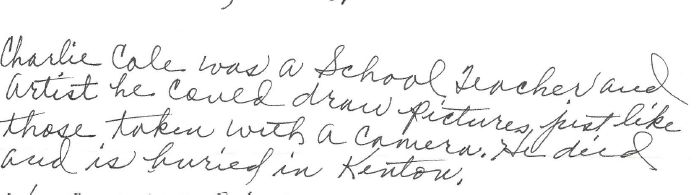 Charlie Cole was a School Teacher and
artist he could draw pictures, just like
those taken with a camera. He died
and is buried in Kenton.